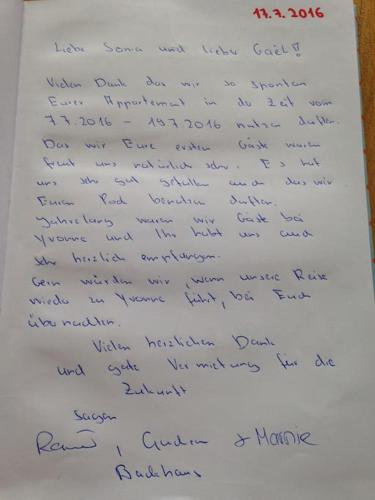 17.7.2016
Liebe Sonia und lieber Gaël!
Vielen Dank das wir so spontan
Euer Appartement in der Zeit vom
7.7.2016 - 19.7.2016 nutzen durften.
Das wir Eure ersten Gäste waren
freut uns natürlich sehr. Es hat
uns sehr gut gefallen auch das wir
Euren Pool benutzen durften.
Jahrelang waren wir Gäste bei
Yvonne und Ihr habt uns auch
sehr herzlich empfangen.
Gern würden wir, wenn unsere Reise
wieder zu Yvonne führt, bei Euch
übernachten.
Vielen herzlichen Dank
und gute Vermietung für die
Zukunft
sagen
, Gudrun + Marnie
Backhaus